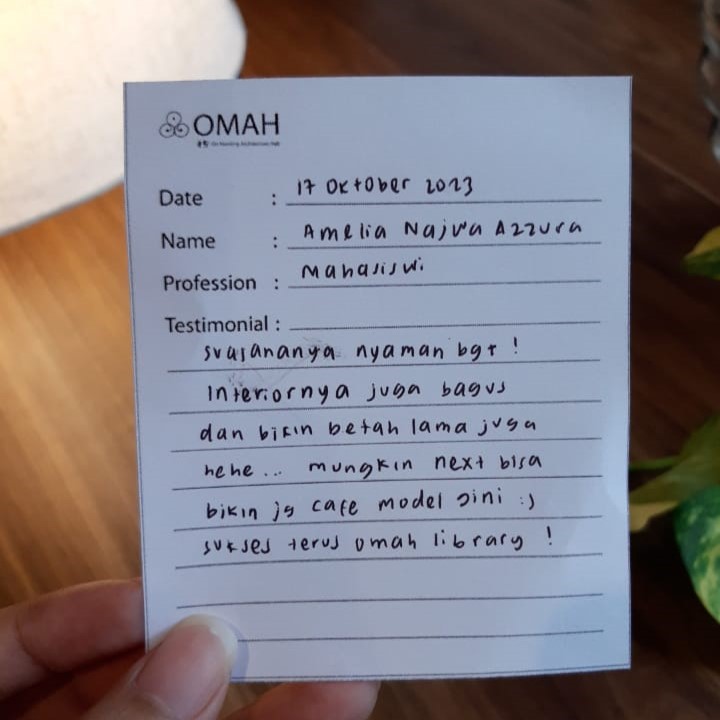 OMAH
Date : 17 Oktober 2023
Name : Amelia Najwa Azzura
Profession : Mahasiswi
Testimonial :
suasananya nyaman bgt !
Interiornya juga bagus
dan bikin betah lama juga
hehe... mungkin next bisa
bikin jg cafe model sini :)
sukses terus omah library !